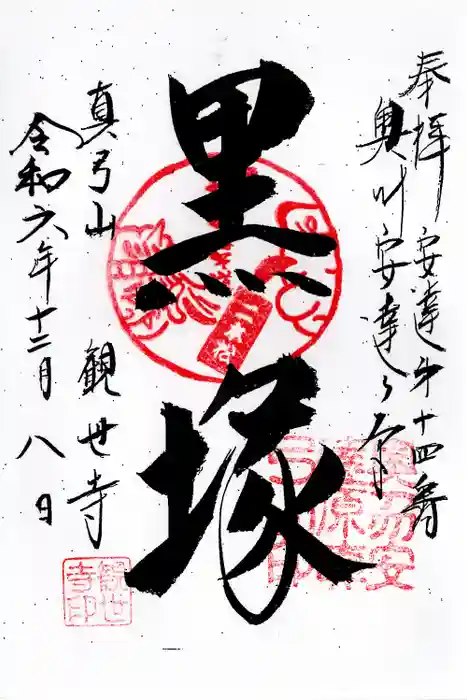 奉拝 安達第十四番
奥州安達ヶ原
黒塚
真弓山 観世寺
令和六年十二月八日
観世
寺印